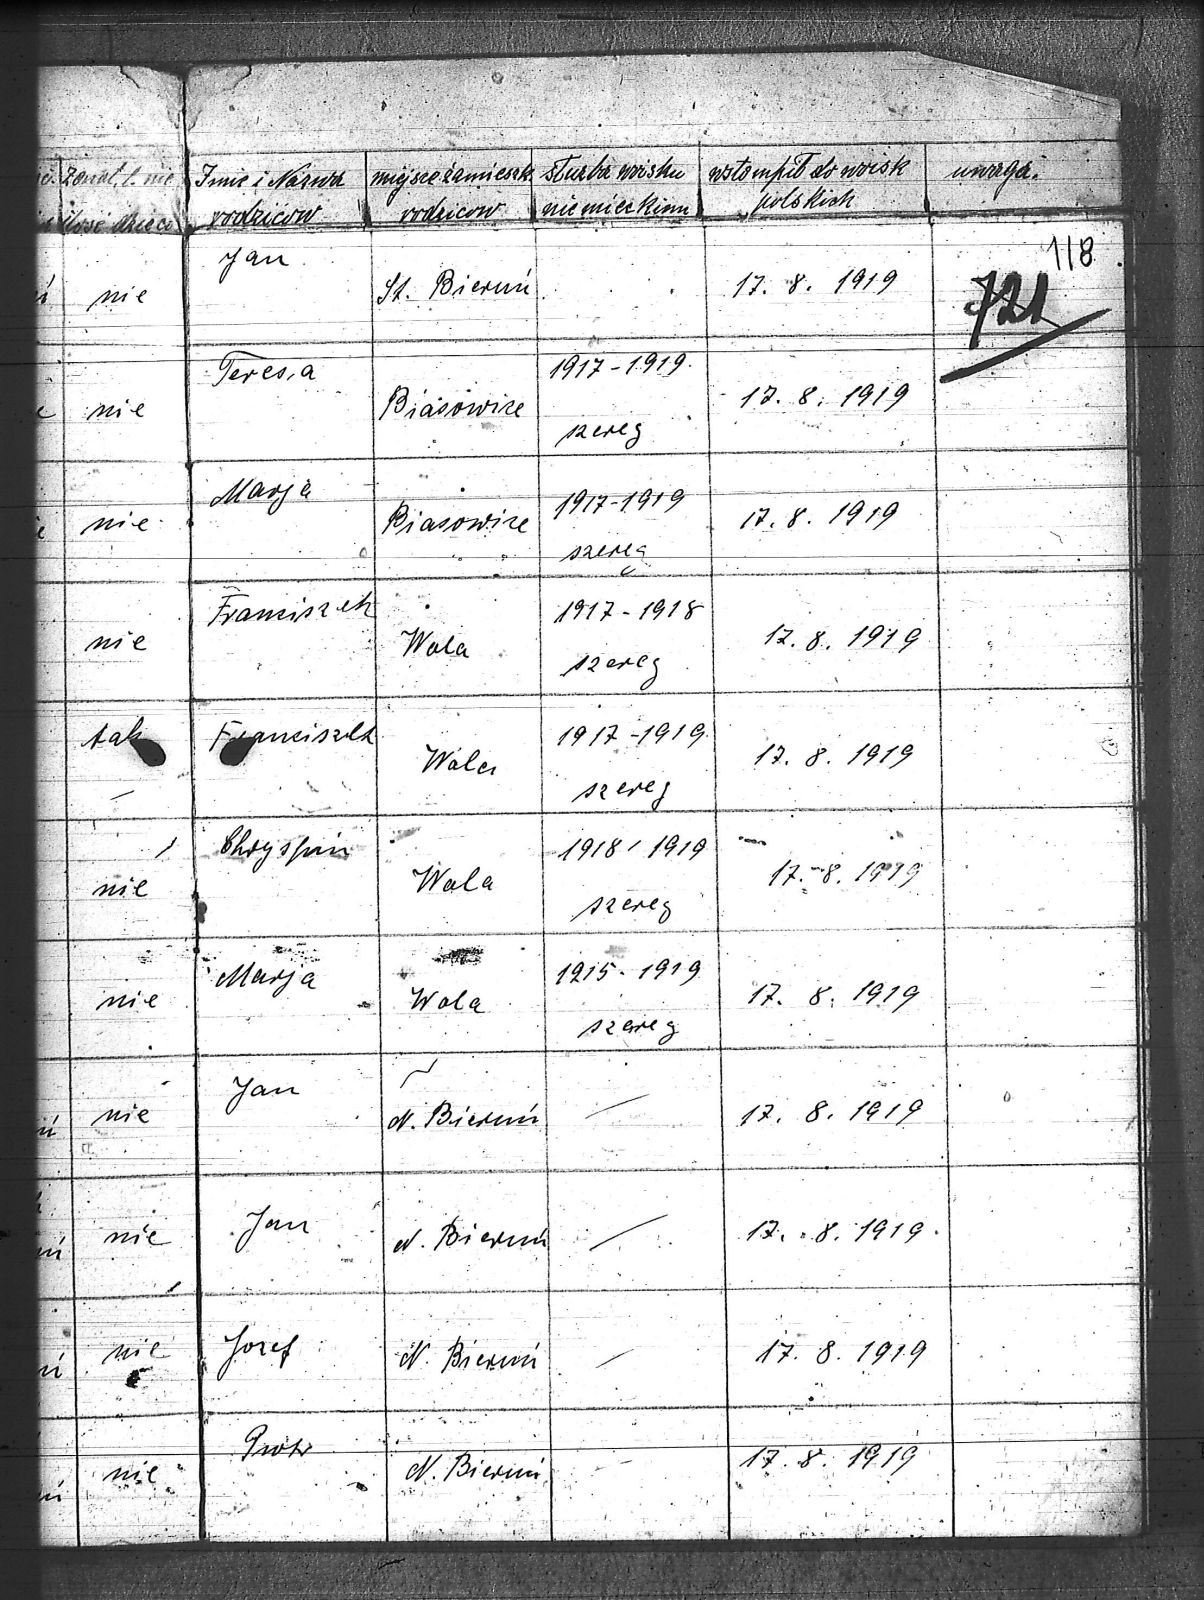 żonat. l. nie Imie i Nazwa miejsce zamieszk służba woisku wstompił do woisk uwaga.
ilość dzieco rodzicow rodzicow niemieckim polskich
118
Jan
nie St. Bieruń 17. 8. 1919 721
Teresa 1917-1919.
nie Biasowice 17. 8. 1919
szereg
Marja 1917-1919
nie Biasowice 17. 8. 1919
szereg
Franciszek 1917-1918
nie Wola 17. 8. 1919
szereg
tak Franciszek 1917-1919
Wola 17. 8. 1919
szereg
1918 1919
nie Wola 17. 8. 1919
szereg
Marja 1915-1919
nie Wola 17. 8. 1919
szereg
Jan
nie N. Bieruń 17. 8. 1919
Jan
nie N. Bieruń 17. 8. 1919
Jozef
nie N. Bieruń 17. 8. 1919
Piotr
nie N. Bieruń 17. 8. 1919